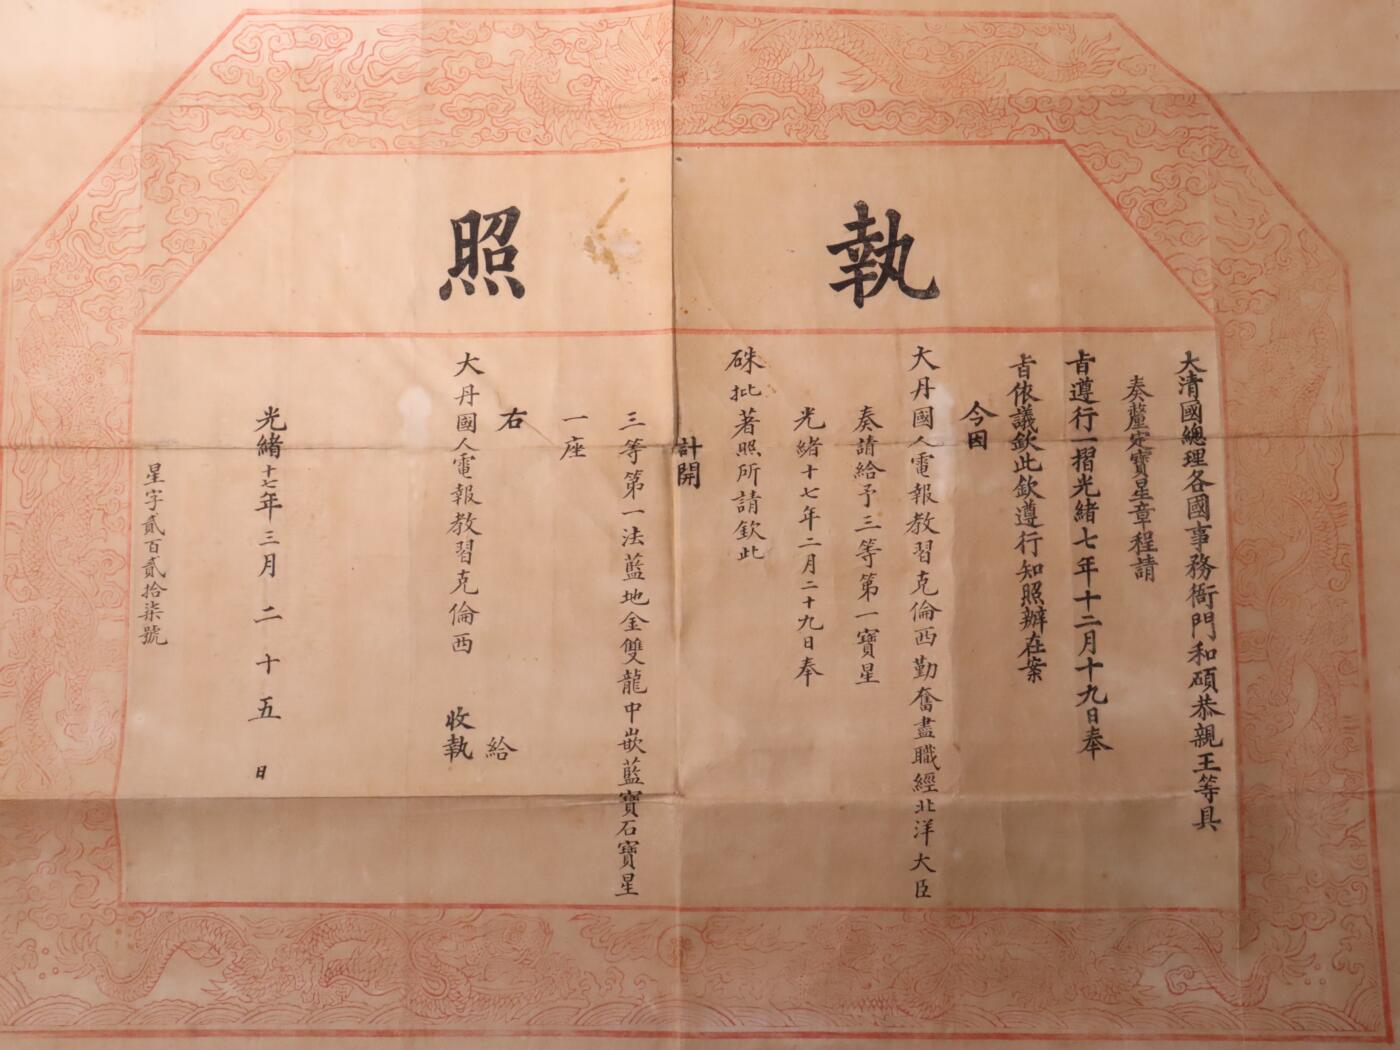 執照
大清國總理各國事務衙門和碩恭親王等具
奏釐定寶星章程請
旨遵行一摺光緒七年十二月十九日奉
旨依議欽此欽遵行知照辦在案
今因
大丹國人電報教習克倫西勤奮盡職經北洋大臣
奏請給予三等第一寶星
光緒十七年二月二十九日奉
硃批著照所請欽此
計開
三等第一法藍地金雙龍中嵌藍寶石寶星
一座
右 給
大丹國人電報教習克倫西 收執
光緒十七年三月二十五日
星字貳百貳拾柒號